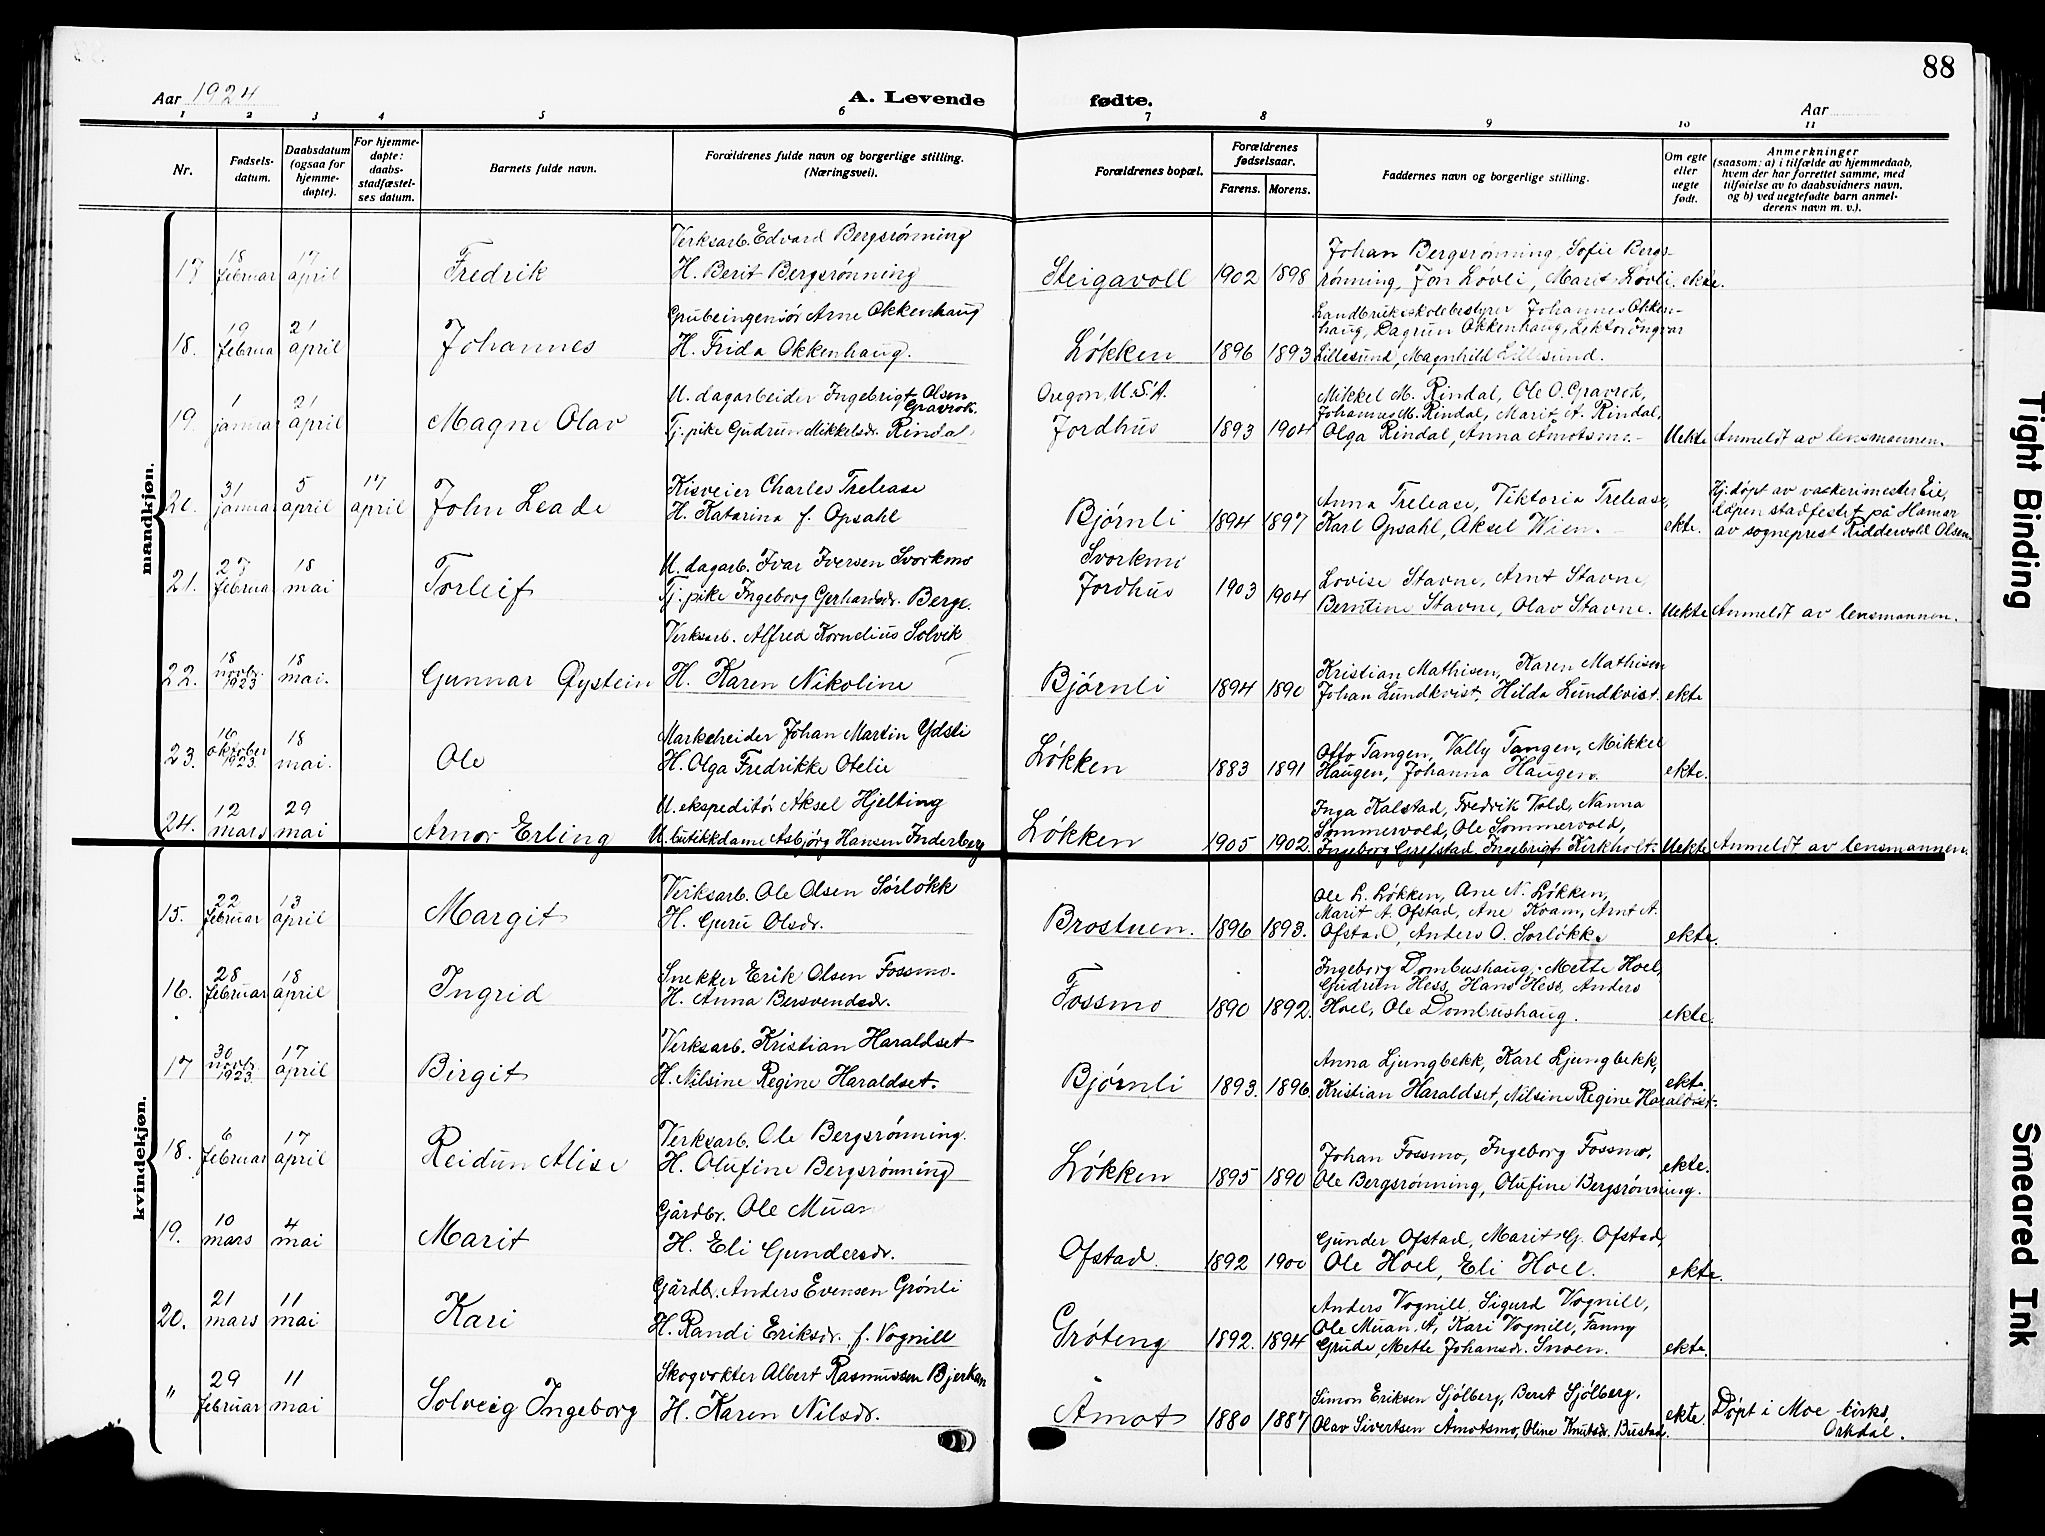 88
Aar 1924
A. Levende
fødte.
Aar
1 2 3 4 5 6 7 8 9 10 11
Nr.
Fødsels-
datum.
Daabsdatum
(ogsaa for
hjemme-
døpte).
For hjemme-
døpte:
daabs-
stadfæstel-
ses datum.
Barnets fulde navn.
Forældrenes fulde navn og borgerlige stilling.
(Næringsvei).
Forældrenes bopæl.
Forældrenes
fødselsaar.
Farens. Morens.
Faddernes navn og borgerlige stilling.
Om egte
eller
uegte
født.
Anmerkninger
(saasom: a) i tilfælde av hjemmedaab,
hvem der har forrettet samme, med
tilføielse av to daabsvidners navn,
og b) ved uegtefødte barn anmel-
derens navn m. v.).
mandkjøn.
17
18
februar
17
april
Fredrik
Verksarb. Edvard Bergsrønning
H. Berit Bergsrønning
Steigavoll
1902
1898
Johan Bergsrønning, Sofie Bergs-
rønning, Jon Løvli, Marit Løvli.
ekte.
18.
19
februa
21
april
Johannes
Grubeingeniør Arne Okkenhaug
H. Frida Okkenhaug.
Løkken
1896
1893
Landbruksskolebestyrer Johannes Okken-
haug, Dagrun Okkenhaug, Lektor Ingvar
Lillesund, Magnhild Lillesund.
19.
1
januar
21
april
Magne Olav
U. dagarbeider Ingebrigt Olsen
Gravrok.
Tj. pike Gudrun Mikkelsdr. Rindal.
Oregon, U.S.A.
Jordhus
1893
1904
Mikkel M. Rindal, Ole O. Gravrok,
Johannes M. Rindal, Marit A. Rindal,
Olga Rindal, Anna Åmotsmo.
Uekte
Anmeldt av lensmannen.
20.
31
januar
5
april
17
april
John Leade
Kisveier Charles Trelease
H. Katarina f. Opsahl
Bjørnli
1894
1897
Anna Trelease, Viktoria Trelease,
Karl Opsahl, Aksel Wien.
ekte.
Hj. døpt av vaskerimester Eie,
dåpen stadfestet på Hamar
av sogneprest Ridderwold Olsen.
21.
27
februa
18
mai
Torleif
U. dagarb. Ivar Iversen Svorkmo
Tj. pike Ingeborg Gerhardsdr. Berge.
Svorkmo
Jordhus
1903
1904
Lovise Stavne, Arnt Stavne,
Berntine Stavne, Olav Stavne.
Uekte
Anmeldt av lensmannen.
22.
18
novbr.
1923
18
mai.
Gunnar Øystein
Verksarb. Alfred Kornelius Solvik
H. Karen Nikoline
Bjørnli
1894
1890
Kristian Mathisen, Karen Mathisen
Johan Lundkvist, Hilda Lundkvist.
ekte
23.
16
oktober
1923
18
mai.
Ole
Markscheider Johan Martin Ydsti
H. Olga Fredrikke Otelie
Løkken
1883
1891
Otto Tangen, Vally Tangen, Mikkel
Haugen, Johanna Haugen.
ekte.
24.
12
mars
29
mai
Arnor Erling
U. ekspeditør Aksel Hjelting
U. butikkdame Asbjørg Hansen Inderberg
Løkken
1905
1902
Inga Kalstad, Fredrik Vold, Nanna
Sommervold, Ole Sommervold,
Ingeborg Grefstad, Ingebrigt Kirkholt.
Uekte
Anmeldt av lensmannen.
kvindekjøn.
15.
22
februar
13
april
Margit
Verksarb. Ole Olsen Sørløkk
H. Guru Olsdr.
Brostuen.
1896
1893.
Ole L. Løkken, Ane N. Løkken,
Marit A. Ofstad, Ane Kvam, Arnt A.
Ofstad, Anders O. Sørløkk.
ekte.
16.
28
februar
18
april
Ingrid
Snekker Erik Olsen Fossmo.
H. Anna Bersvendsdr.
Fossmo
1890
1892.
Ingeborg Dombushaug, Mette Hoel,
Gudrun Hess, Hans Hess, Anders
Hoel, Ole Dombushaug.
ekte.
17
30
novbr.
1923
17
april
Birgit
Verksarb. Kristian Haraldset
H. Nilsine Regine Haraldset.
Bjørnli
1893.
1896.
Anna Ljungbekk, Karl Ljungbekk,
Kristian Haraldset, Nilsine Regine Haraldset.
ekte.
18.
6
februar
17
april
Reidun Alise
Verksarb. Ole Bergsrønning.
H. Olufine Bergsrønning
Løkken
1895
1890
Johan Fossmo, Ingeborg Fossmo,
Ole Bergsrønning, Olufine Bergsrønning.
ekte.
19.
10
mars
4
mai
Marit
Gårdbr. Ole Muan
H. Eli Gundersdr.
Ofstad.
1892
1900
Gunder Ofstad, Marit G. Ofstad,
Ole Hoel, Eli Hoel.
ekte.
20.
21
mars
11
mai
Kari
Gårdbr. Anders Evensen Grønli
H. Randi Eriksdr. f. Vognill
Grøteng
1892.
1894
Anders Vognill, Sigurd Vognill,
Ole Muan, A. Kari Vognill, Fanny
Grude, Mette Johansdr. Snoen.
ekte.
"
29
februar
11
mai
Solveig Ingeborg
Skogvokter Albert Rasmussen Bjerkan
H. Karen Nilsdr.
Åmot
1880
1887
Simon Eriksen Sjølberg, Beret Sjølberg,
Olav Sivertsen Åmotsmo, Oline Knutsdr. Bustad.
ekte.
Døpt i Moe kirke,
Orkdal.
Tight Binding
Smeared Ink